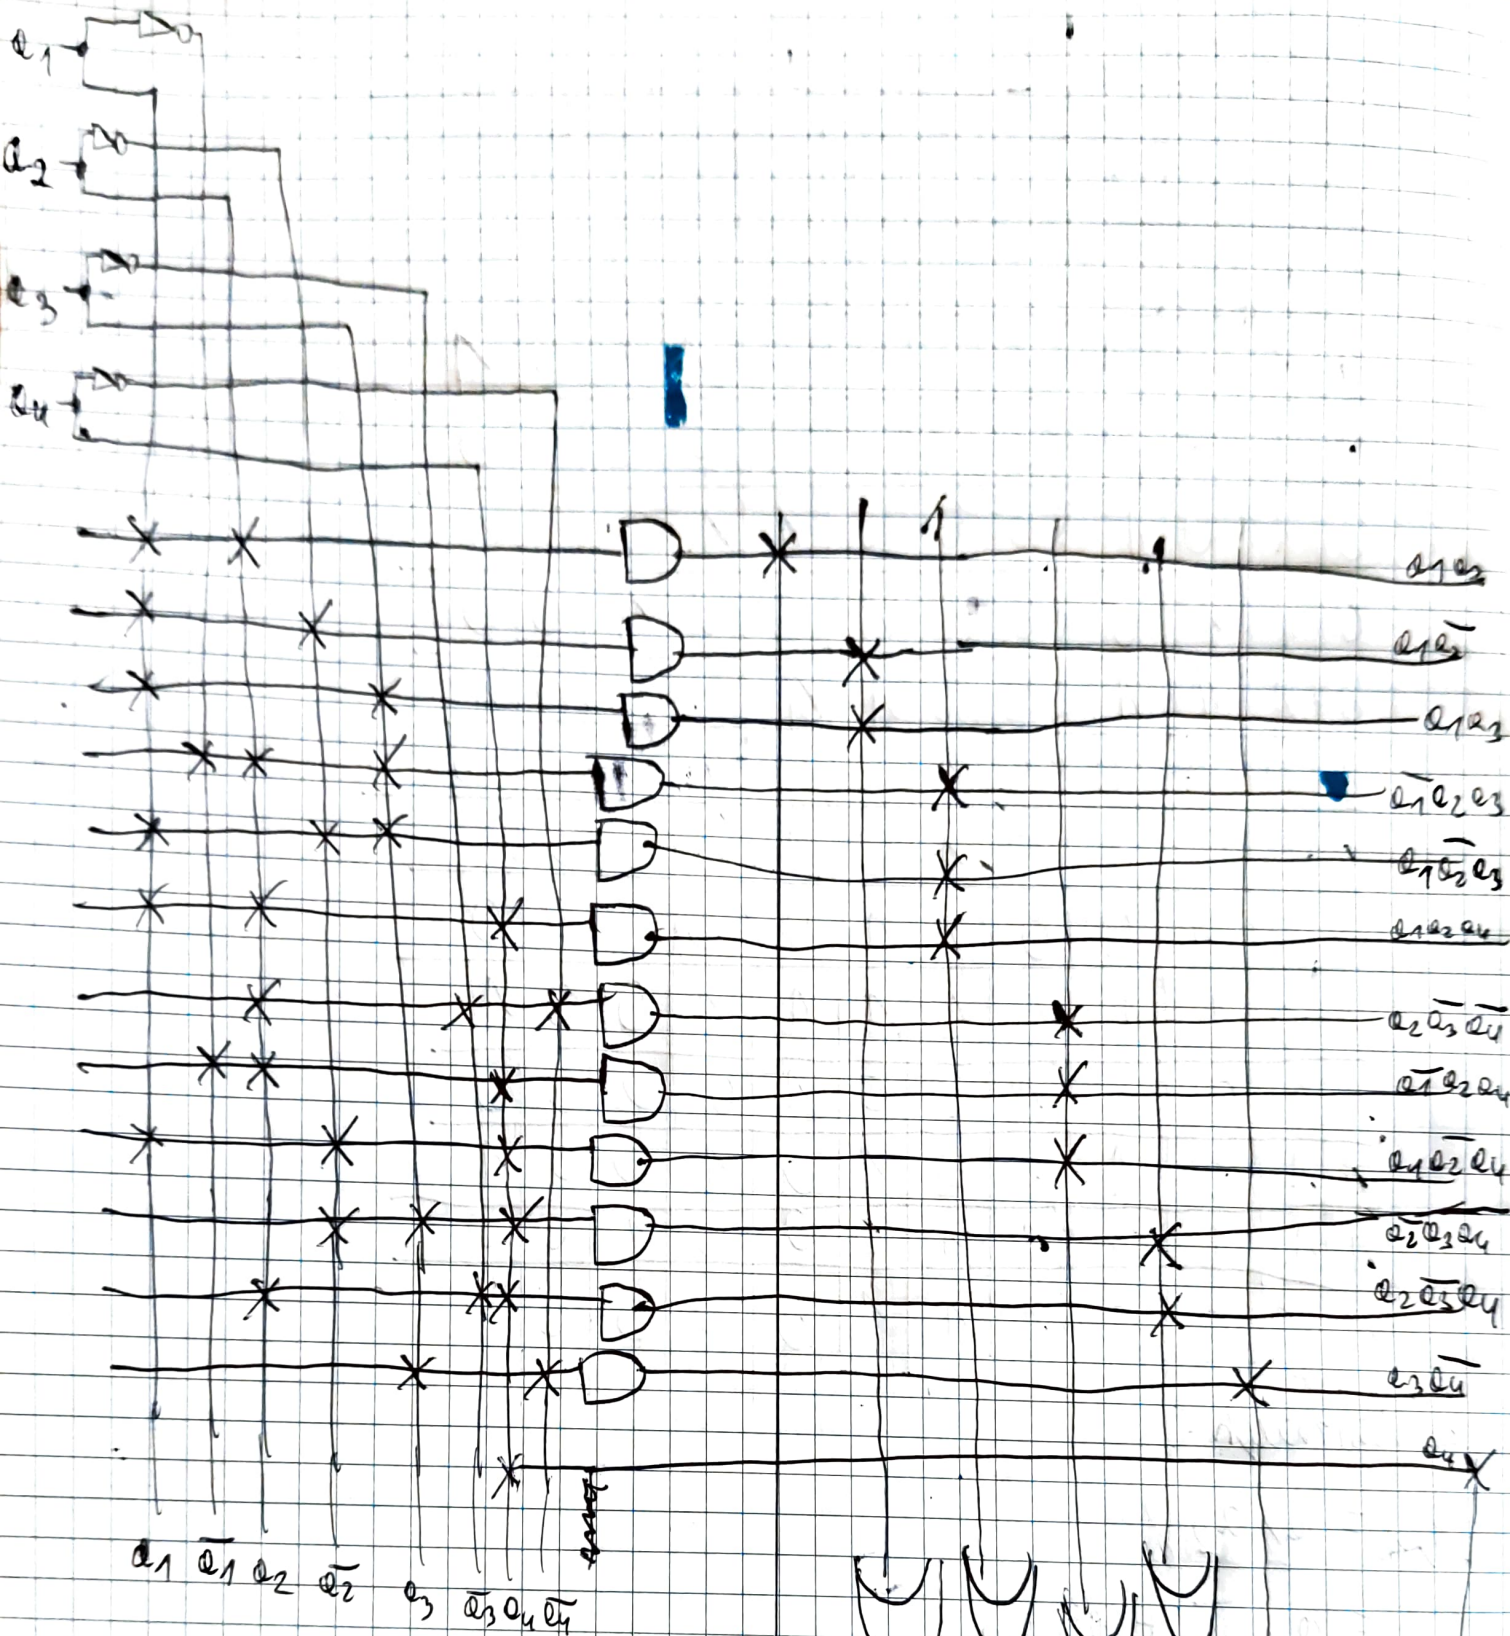 a1
a2
a3
a4
a1a2
a1a̅2̅
a1a3
a̅1̅a2a3
a1a̅2̅a3
a1a2a4
a2a̅3̅a̅4̅
a̅1̅a2a4
a1a̅2̅a4
a̅2̅a3a4
a2a̅3̅a4
a3a̅4̅
a4
a1 a̅1̅ a2 a̅2̅ a3 a̅3̅ a4 a̅4̅